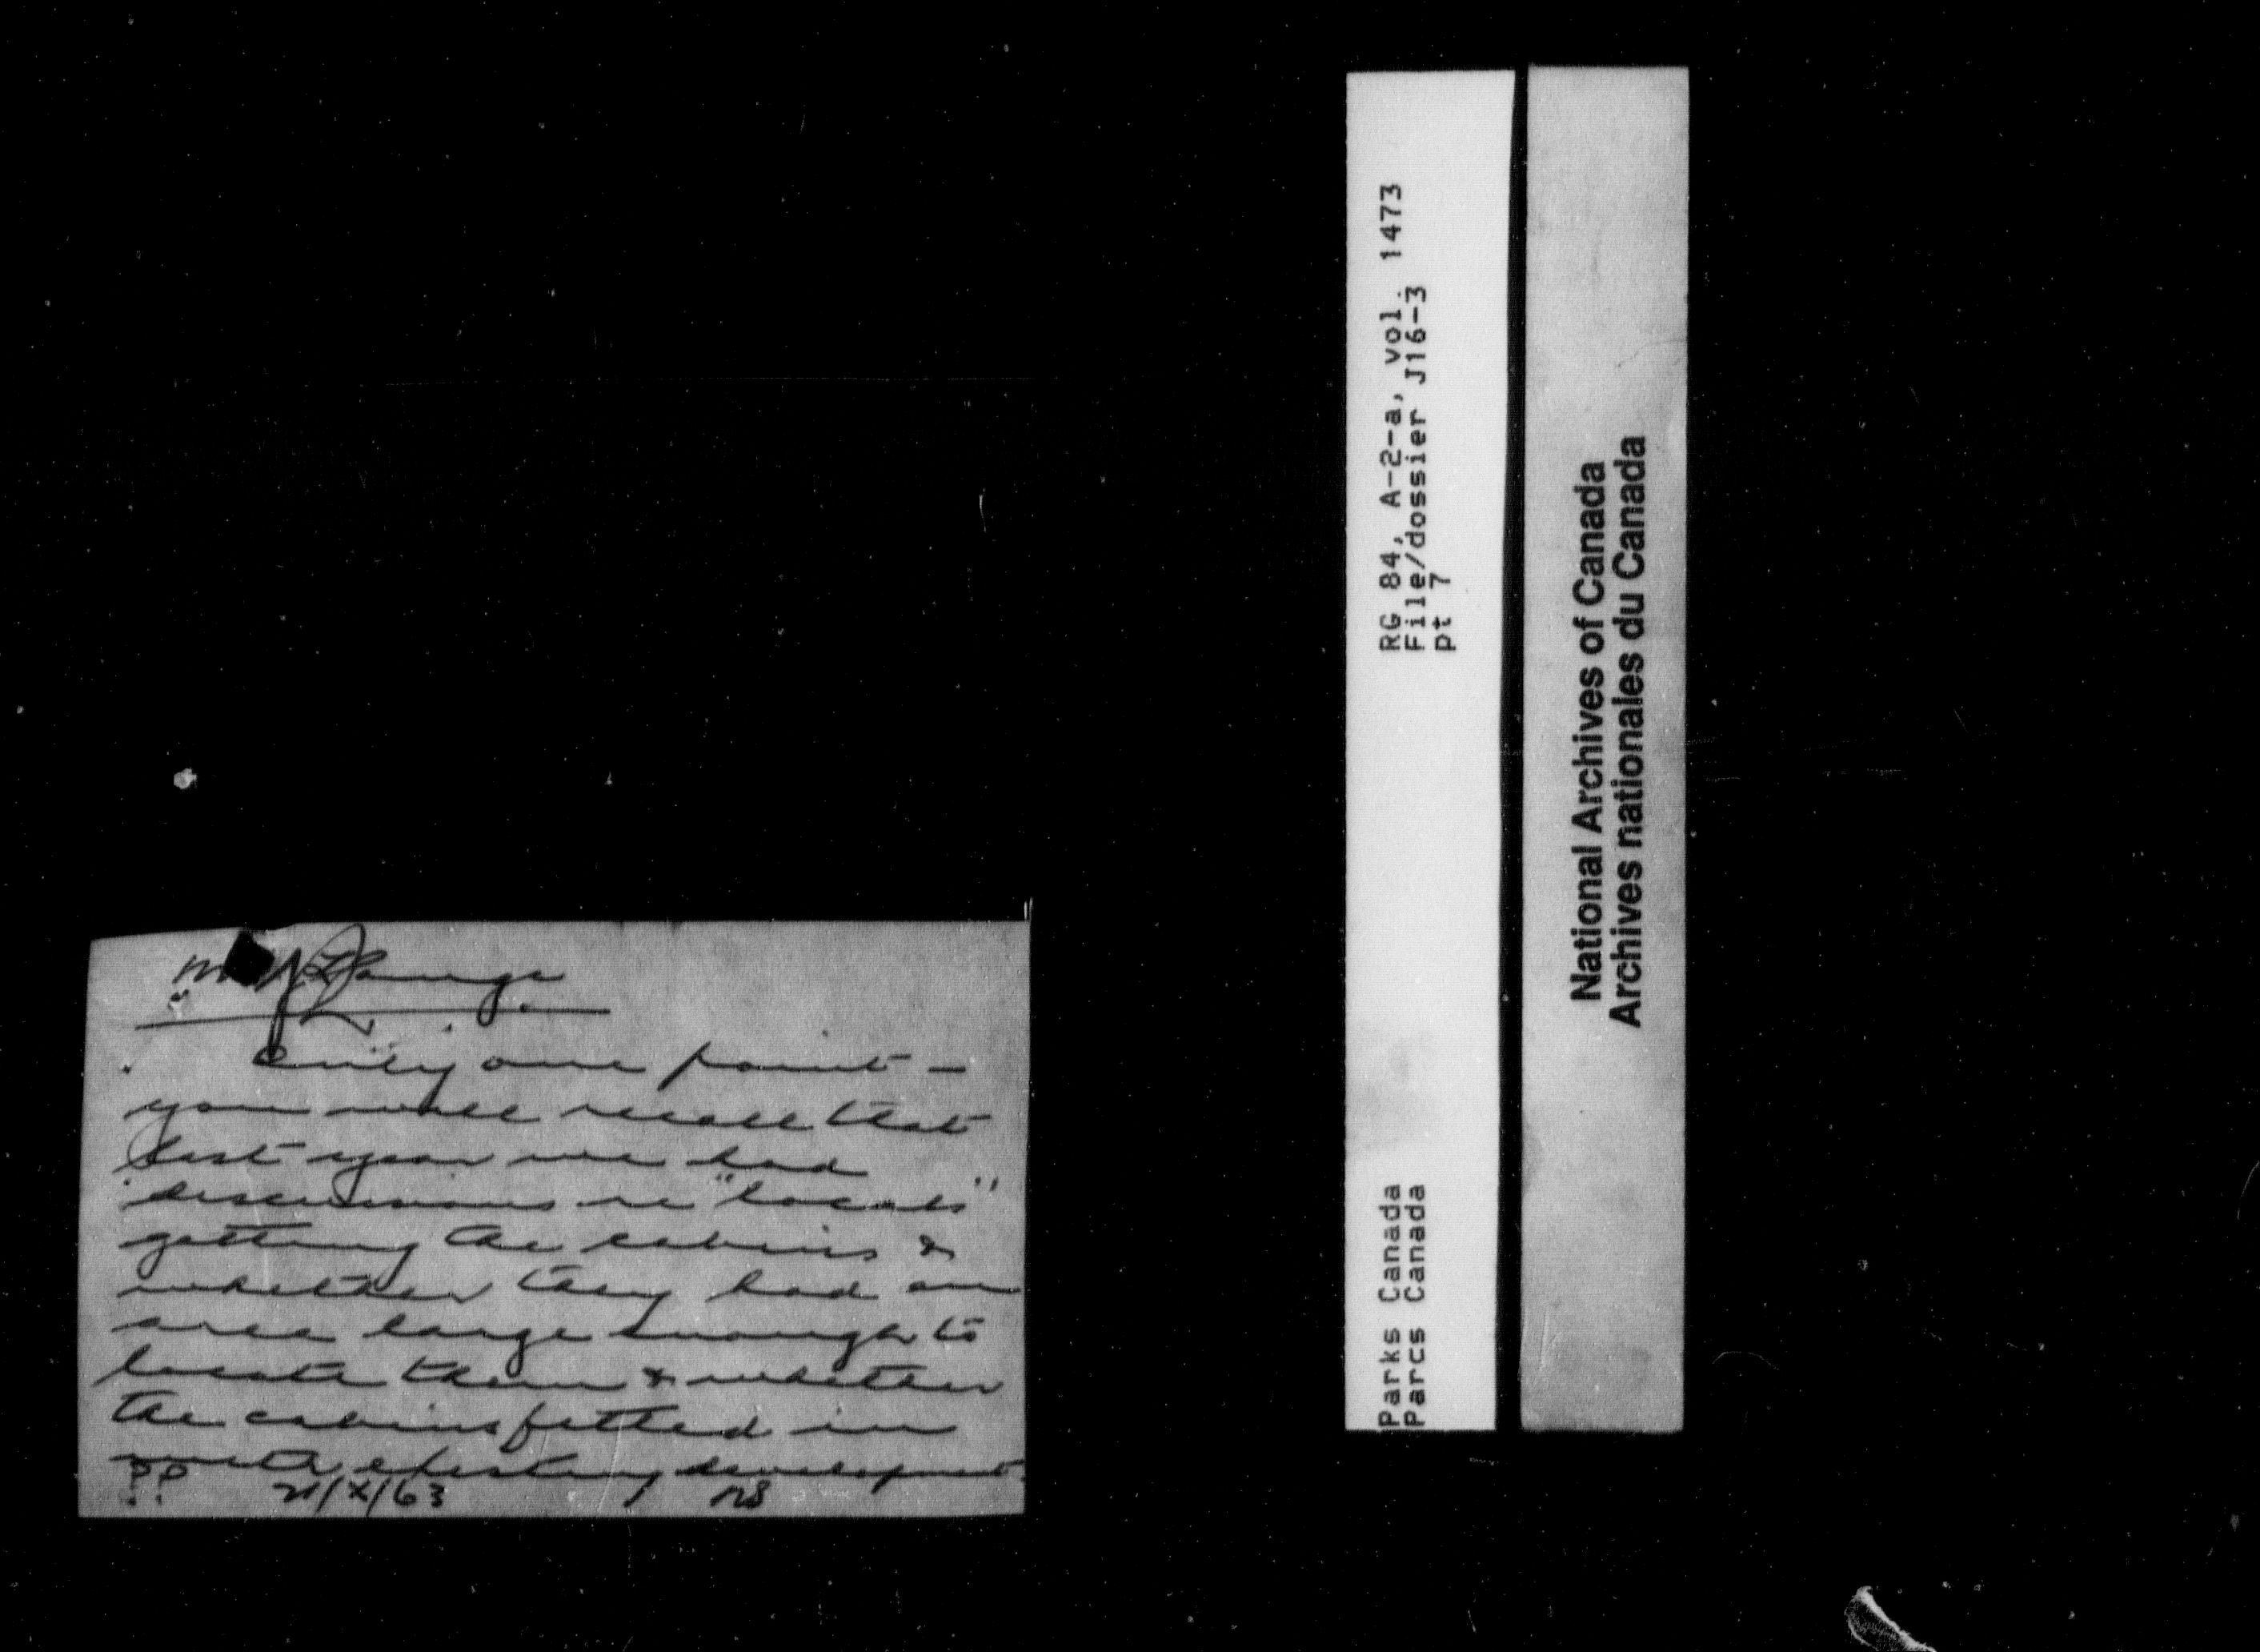 Only one point -
you will recall that
last year we had
discussions re "locals"
getting the cabins &
whether they had an
area large enough to
locate them & whether
the cabins fitted in
with existing development
??   21/X/63
RG 84, A-2-a, vol. 1473
File/dossier J16-3
pt 7
Parks Canada
Parcs Canada
National Archives of Canada
Archives nationales du Canada